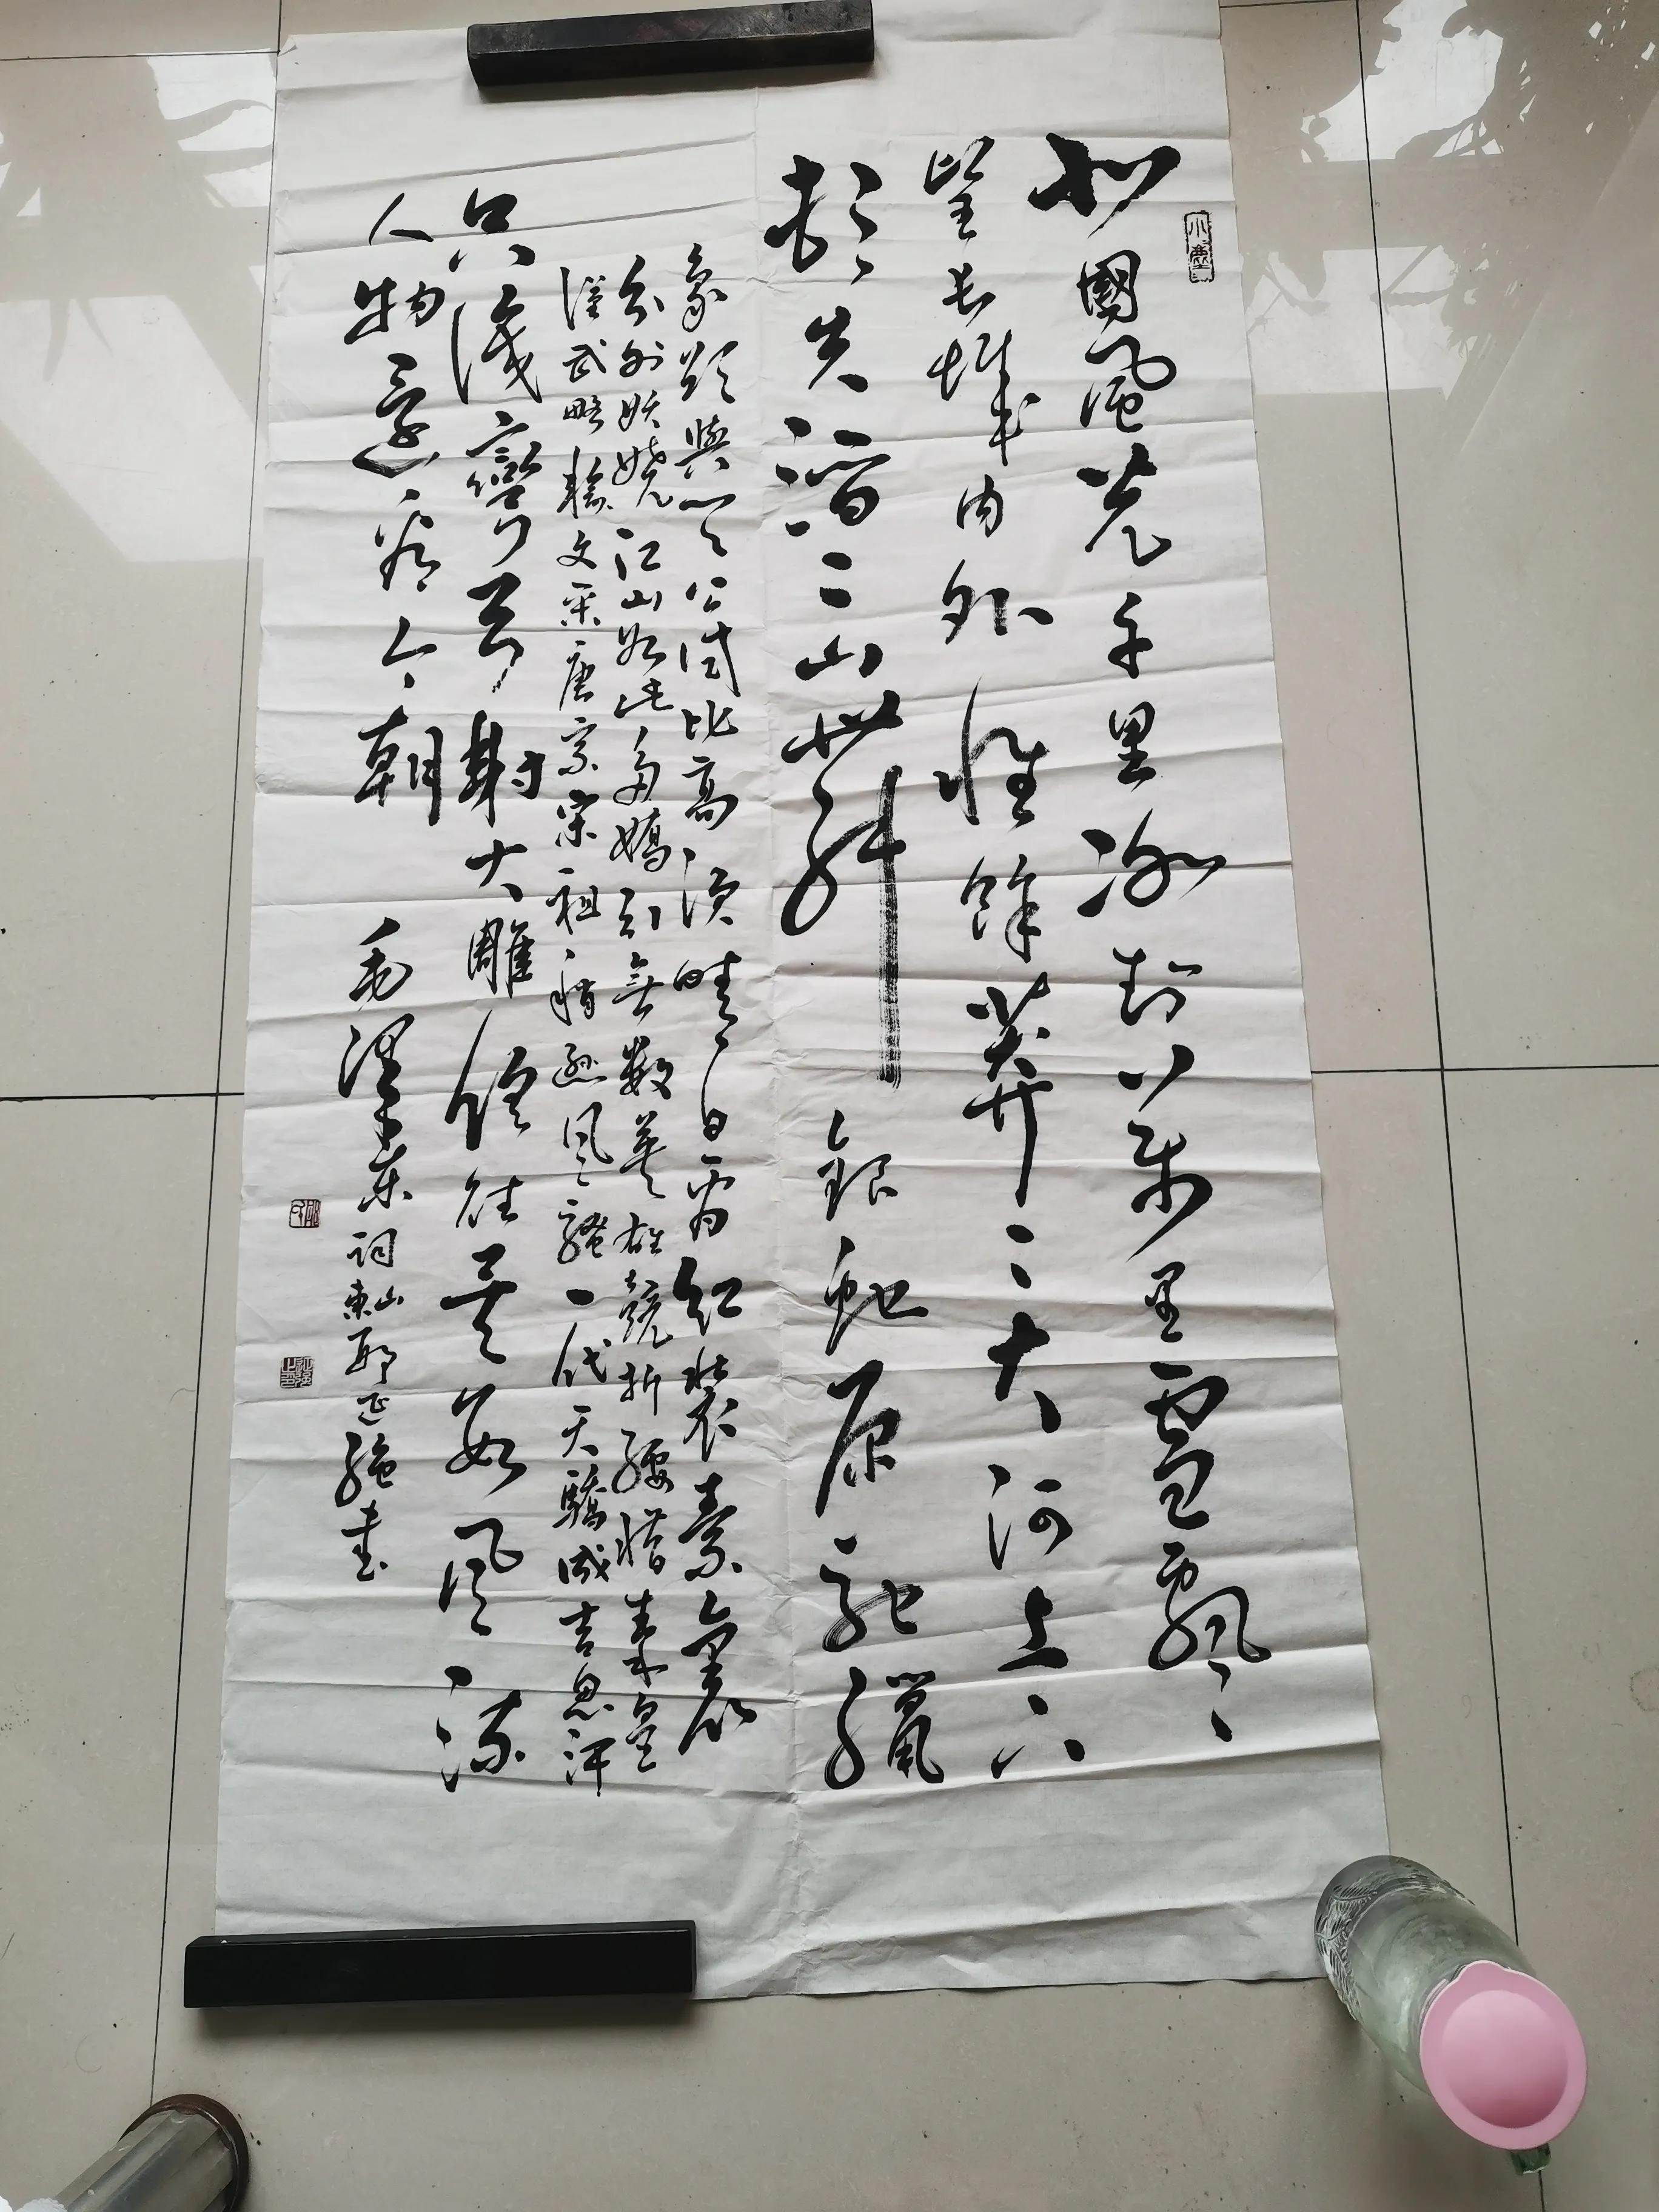 北國風光千里冰封萬里雪飄
望長城内外惟餘莽〻大河上下
頓失滔〻山舞銀蛇原馳蠟
象欲與天公試比高須晴日看紅裝素裹
分外妖嬈江山如此多嬌引無數英雄競折腰惜秦皇
漢武略輸文采唐宗宋祖稍遜風騷一代天驕成吉思汗
只識彎弓射大雕俱往矣數風流
人物還看今朝 毛澤東詞 山東書